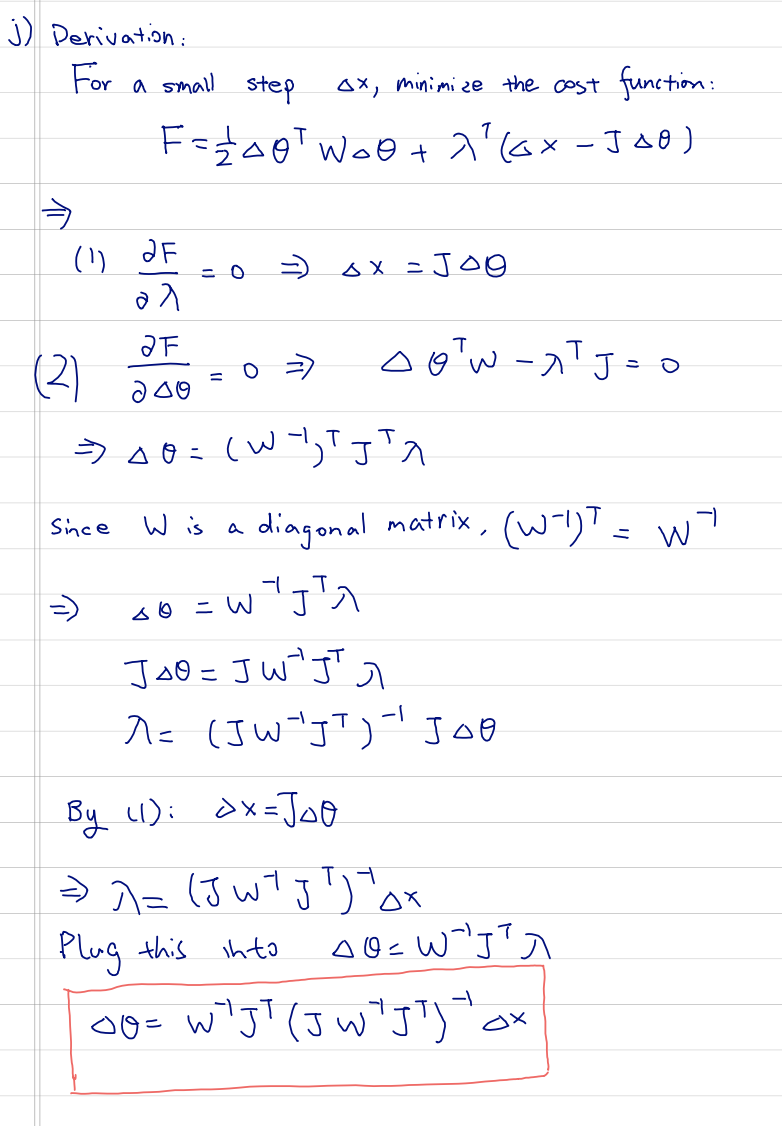 j) Derivation:
For a small step Δx, minimize the cost function:
F = 1/2 Δθᵀ W Δθ + λᵀ (Δx − J Δθ)
⇒
(1) ∂F/∂λ = 0 ⇒ Δx = J Δθ
(2) ∂F/∂Δθ = 0 ⇒ Δθᵀ W − λᵀ J = 0
⇒ Δθ = (W⁻¹)ᵀ Jᵀ λ
Since W is a diagonal matrix, (W⁻¹)ᵀ = W⁻¹
⇒ Δθ = W⁻¹ Jᵀ λ
J Δθ = J W⁻¹ Jᵀ λ
λ = (J W⁻¹ Jᵀ)⁻¹ J Δθ
By (1): Δx = J Δθ
⇒ λ = (J W⁻¹ Jᵀ)⁻¹ Δx
Plug this into Δθ = W⁻¹ Jᵀ λ
Δθ = W⁻¹ Jᵀ (J W⁻¹ Jᵀ)⁻¹ Δx